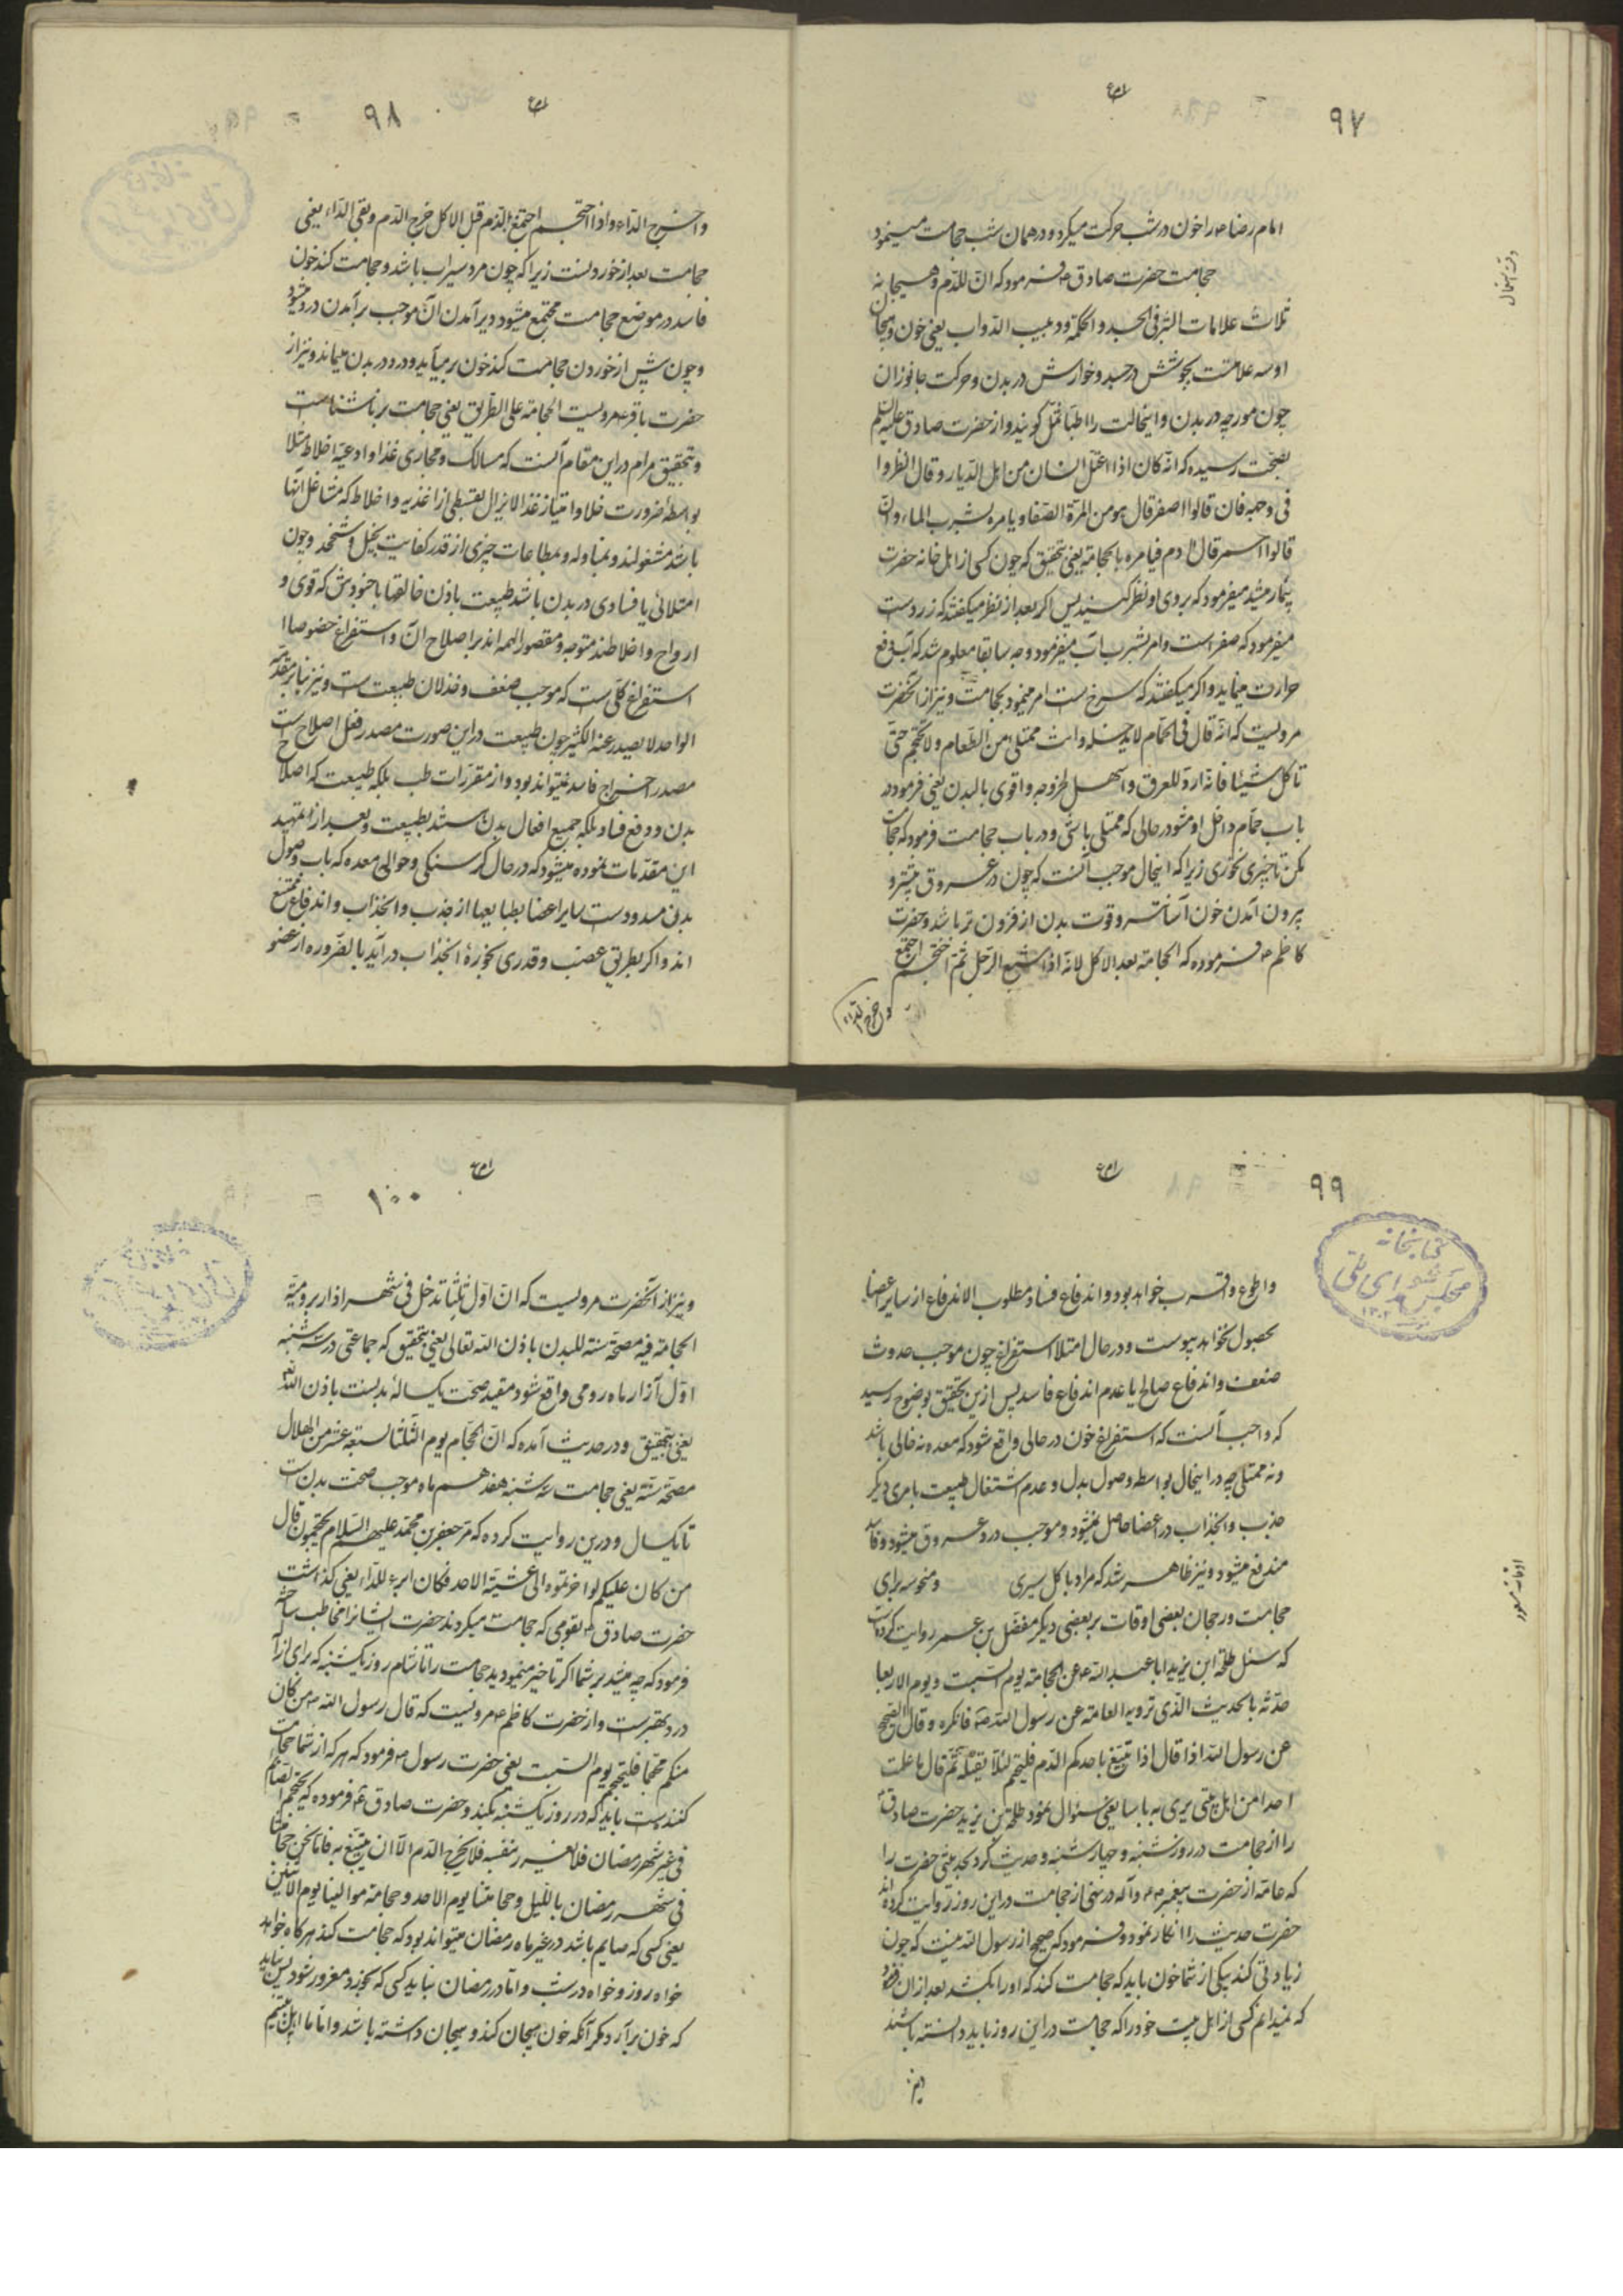 ۹۷
امام رضا ع را خون در شب حرکت میکرد و در همان شب حجامت مینمود
حجامت حضرت صادق ع فرمود که ان للدم و هیجانه
ثلاث علامات البثر فی الجسد و الحکة و دبیب الدواب یعنی خون و هیجان
او سه علامتست بجوشش در جسد و خوارش در بدن و حرکت جانوران
چون مورچه در بدن و اینحالت را اطبا نمل گویند و از حضرت صادق علیه السلم
بصحت رسیده که انه کان اذا اعتل انسان من اهل الدیار و قال انظروا
فی وجهه فان قالوا اصفر قال هو من المرة الصفرا و یامره بشرب الماء و ان
قالوا اسمر قال دم فیامره بالحجامة یعنی بتحقیق که چون کسی از اهل خانه حضرت
بیمار میشد میفرمود که بروی او نظر کنید پس اگر بعد از نظر میگفتند که زردست
میفرمود که صفر است و امر بشرب آب میفرمود و چه سابقا معلوم شد که آب دفع
حرارت مینماید و اگر میگفتند که سرخ ست امر مینمود بحجامت و نیز از آنحضرت
مرویست که انه قال فی الحمام لا تدخله و انت ممتلی من الطعام و لا تحتجم حتی
تاکل شیئا فانه ادر للعرق و اسهل لخروجه و اقوی بالبدن یعنی فرمود در
باب حمام داخل او مشو در حالی که ممتلی باشی و در باب حجامت فرمود که حجامت
مکن تا چیزی نخوری زیرا که اینحال موجب آنست که چون در عروق بیشتر و
بیرون آمدن خون آسانتر و قوت بدن از فزون تر باشد و حضرت
کاظم ع فرموده که الحجامة بعد الاکل لانه اذا شبع الرجل ثم احتجم اجتمع
و خرج الداء
۹۸
و اخرج الداء و اذا احتجم اجتمع الدم قبل الاکل خرج الدم و بقی الداء یعنی
حجامت بعد از خوردنست زیرا که چون مرد سیراب باشد و حجامت کند خون
فاسد در موضع حجامت مجتمع میشود و بر آمدن آن موجب بر آمدن درد میشود
و چون پیش از خوردن حجامت کند خون بر میآید و درد در بدن میماند و نیز از
حضرت باقر ع مرویست الحجامة علی الطریق یعنی حجامت بر ناشتاست
و تحقیق مرام در این مقام آنست که مسالک و مجاری غذا و اوعیه اخلاط مثلا
بواسطه ضرورت خلا و امتیاز غذا لایزال بقسطی از اغذیه و اخلاط که مشاغل آنها
باشد مشغولند و بتناوله و بطاعات چیزی از قدر کفایت و چون
امتلائی یا فسادی در بدن باشد طبیعت باذن خالقها با جنودش که قوی و
ارواح و اخلاطند متوجه و مقصور الهمه اند بر اصلاح آن و استفراغ خصوصا
استفراغ کلی ست که موجب ضعف و خذلان طبیعت است و نیز بنا بر مقدمه
الواحد لا یصدر عنه الکثیر چون طبیعت در این صورت مصدر فعل اصلاح ست
مصدر اخراج فاسد نمیتواند بود و از مقررات طب بلکه طبیعت که اصلاح
بدن و دفع فساد بلکه جمیع افعال بدن مستند بطبیعت و بعد از تمهید
این مقدمات نموده میشود که در حال گرسنگی و خوالی معده که باب وصول
بدل مسدودست سایر اعضا بطبایعها از جذب و انجذاب و اندفاع ممتنع
اند و اگر بطریق غصب و قدری بخوره انجذاب درآید بالضروره از عضو
۹۹
کتابخانه
مجلس شورای ملی
و اطوع و اقرب خواهد بود و اندفاع فساد مطلوب الاندفاع از سایر اعضا
بحصول نخواهد پیوست و در حال امتلا استفراغ چون موجب حدوث
ضعف و اندفاع صالح یا عدم اندفاع فاسد پس ازین تحقیق بوضوح رسید
که واجب آنست که استفراغ خون در حالی واقع شود که معده نه خالی باشد
و نه ممتلی چه در اینحال بواسطه وصول بدل و عدم اشتغال طبیعت بامری دیگر
جذب و انجذاب در اعضا حاصل میشود و موجب درد عروق میشود و فاسد
مندفع میشود و نیز ظاهر شد که مراد باکل سیری و منحوسه برای
حجامت و رجحان بعضی اوقات بر بعضی دیگر مفضل بن عمر روایت کرده است
که سئل طلحة ابن یزید ابا عبد الله ع عن الحجامة یوم السبت و یوم الاربعا
حدثه بالحدیث الذی ترویه العامة عن رسول الله ص فانکره و قال الصحیح
عن رسول الله اذا قال اذا تبیغ باحدکم الدم فلیحتجم لئلا یقتله ثم قال ما علمت
احدا من اهل بیتی یری به باسا یعنی سئوال نمود طلحة بن یزید حضرت صادق ع
را از حجامت در روز شنبه و چهارشنبه و حدیث کرد بحدیثی حضرت را
که عامه از حضرت پیغمبر ص و آله در نهی از حجامت در این روز روایت کرده اند
حضرت حدیث را انکار نمود و فرمود که صحیح از رسول الله نیست که چون
زیادتی کند بیکی از شما خون باید که حجامت کند که او را نکشد بعد از ان فرمود
که نمیدانم کسی از اهل بیت خود را که حجامت در این روز باید دانسته باشند
و نیز
۱۰۰
و نیز از آنحضرت مرویست که ان اول ثلثا تدخل فی شهر اذار برومیه
الحجامة فیه مصحة سنة للبدن باذن الله تعالی یعنی بتحقیق که حجامتی در سه شنبه
اول آزار ماه رومی واقع شود مفید صحت یکساله بدنست باذن الله
یعنی بتحقیق و در حدیث آمده که ان الحجام یوم الثلثا لسبعة عشر من الهلال
مصحة سنة یعنی حجامت سه شنبه هفدهم ماه موجب صحت بدن ست
تا یکسال و درین روایت کرده که مر جعفر بن محمد علیهم السلام یحتجمون قال
من کان علیکم لو اخرتموه الی عشیة الاحد فکان ابرء للداء یعنی گذشت
حضرت صادق ع بقومی که حجامت میکردند حضرت ایشانرا مخاطب ساخته
فرمود که چه میشد بر شما اگر تاخیر مینمودید حجامت را تا شام روز یکشنبه که برای ازاله
درد بهترست و از حضرت کاظم ع مرویست که قال رسول الله ص من کان
منکم محتجما فلیحتجم یوم السبت یعنی حضرت رسول ص فرمود که هر که از شما حجامت
کننده ست باید که در روز یکشنبه بکند و حضرت صادق ع فرموده که یحتجم الصائم
فی غیر شهر رمضان فلا یغرر بنفسه فلا یخرج الدم الا ان یتبیغ به فاما نحن حجامتنا
فی شهر رمضان باللیل و حجامتنا یوم الاحد و حجامة موالینا یوم الاثنین
یعنی کسی که صایم باشد در غیر ماه رمضان میتواند بود که حجامت کند هر گاه خواهد
خواه روز و خواه در شب و اما در رمضان نباید کسی که بخود مغرور شود پس نباید
که خون برآرد مگر آنکه خون هیجان کند و هیجان داشته باشد و اما ما اهل بیتیم